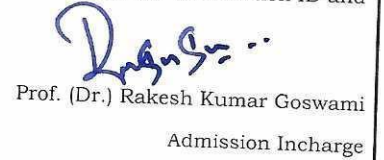 ID and
Prof. (Dr.) Rakesh Kumar Goswami
Admission Incharge